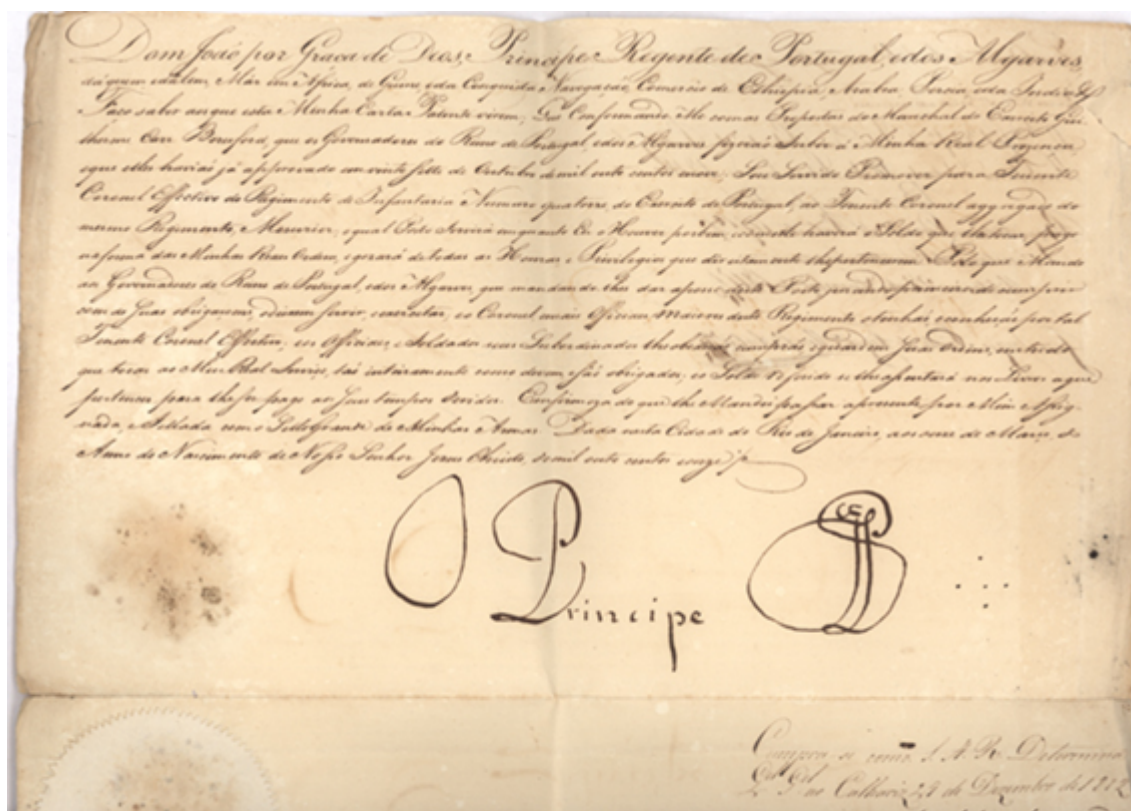 Dom João por Graça de Deos, Principe Regente de Portugal, e dos Algarves,
daquem, e dalem, Mar em Africa, de Guiné, e da Conquista, Navegação, Comercio de Ethiopia, Arabia, Persia, e da India &
Faço saber aos que esta Minha Carta Patente virem, Que Conformando-Me com as Propostas do Marechal do Exercito Gui
lherme Carr Beresford, que os Governadores do Reino de Portugal, e dos Algarves fizerão subir á Minha Real Prezença,
e que elles haviâo já approvado em vinte sette de Outubro de mil oito centos nove; Sou Servido Promover para Tenente
Coronel Effectivo do Regimento de Infantaria Numero quatorze, do Exercito de Portugal, ao Tenente Coronel aggregado do
mesmo Regimento, o qual Posto servirá em quanto Eu o Houver por bem, e com elle haverá o Soldo que lhe tocar, pago
na forma das Minhas Reaes Ordens, e gozará de todas as Honras e Privilegios que direitamente lhe pertencerem. Pelo que Mando
aos Governadores do Reino de Portugal, e dos Algarves, que mandando-lhe dar a posse deste Posto, jurando primeiro de cumprir
com as suas obrigaçoens, o deixem servir, e exercitar, e o Coronel e mais Officiaes Maiores deste Regimento o tenhão, e conheção por tal
Tenente Coronel Effectivo; e os Officiaes, e Soldados seus Subordinados lhe obedeção, cumprão, e guardem suas Ordens, em tudo
que tocar ao Meu Real Serviço, tão inteiramente como devem, e são obrigados; e o Soldo referido se lhe assentará nos Livros a que
pertencer para lhe ser pago aos seus tempos devidos. Em firmeza do que lhe Mandei passar a presente por Mim Assig
nada, e Sellada com o Sello Grande de Minhas Armas. Dada nesta Cidade do Rio de Janeiro, aos onze de Março, do
Anno do Nascimento de Nosso Senhor Jesus Christo, de mil oito centos e onze
O Principe
Cumpra-se como S. A. R. Determina
Calhariz 28 de Dezembro de 1812